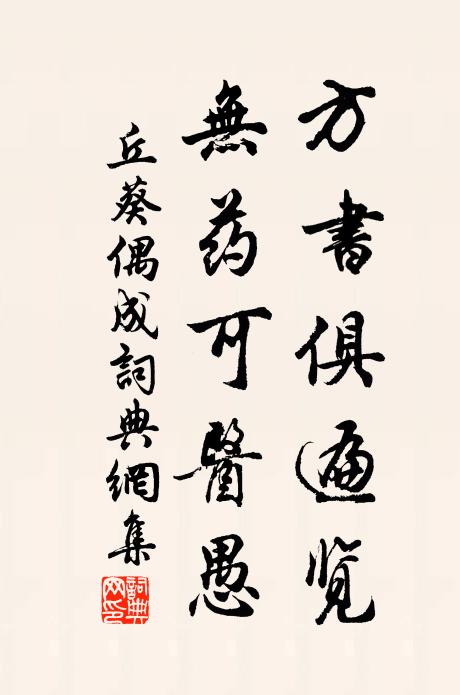 方書俱遍览
無药可醫愚
丘葵偶成詞典網集
詞典网印